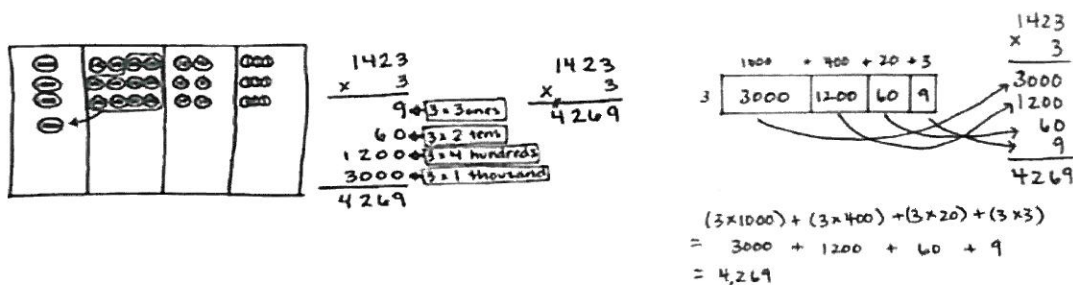 1423
x 3
9 3 x 3 ones
60 3 x 2 tens
1200 3 x 4 hundreds
3000 3 x 1 thousand
4269
1423
x 3
4269
1000 + 400 + 20 + 3
3 3000 1200 60 9
1423
x 3
3000
1200
60
9
4269
(3×1000) + (3×400) + (3×20) + (3×3)
= 3000 + 1200 + 60 + 9
= 4,269